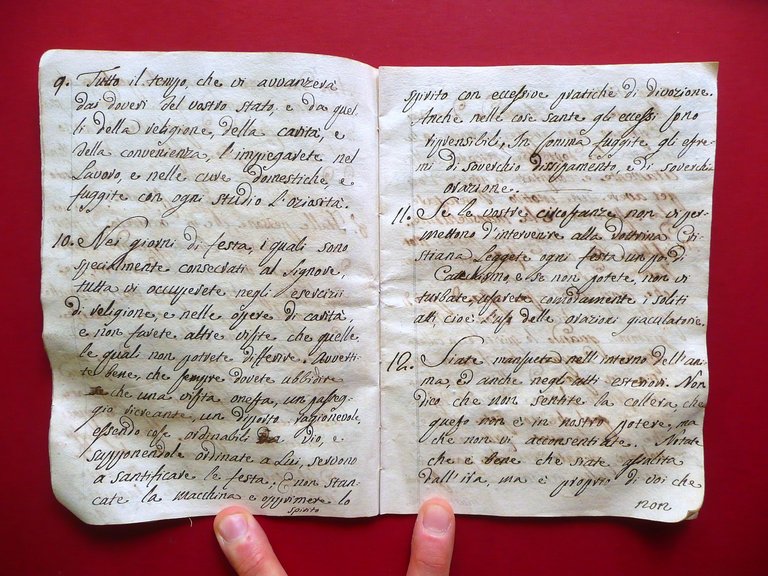 9. Tutto il tempo, che vi avvanzerà
dai doveri del vostro stato, e da quel-
li della religione, della carità, e
della convenienza, l'impiegarete nel
Lavoro, e nelle cure domestiche, e
fuggite con ogni studio l'oziosità.
10. Nei giorni di festa, i quali sono
specialmente consecrati al Signore,
tutta vi occuperete negli esercizii
di religione, e nelle opere di carità,
e non farete altre visite che quelle,
le quali non potrete differire. Avverti-
te bene, che sempre dovete ubbidire
e che una visita onesta, un passeg-
gio ricreante, un ragionevole,
essendo cose ordinabili a Dio, e
supponendole ordinate a Lui, servono
a santificare le feste; E non stan-
cate la macchina e opprimere lo
spirito
spirito con eccessive pratiche di divozione.
Anche nelle cose sante gli eccessi sono
riprensibili. In somma fuggite gli estre-
mi di soverchio dissipamento, e di soverchia
orazione.
11. Se le vostre circostanze non vi per-
mettono d'intervenire alla Dottrina Cri-
stiana leggete ogni festa un po' di
Catechismo, e se non potete, non vi
turbate, usarete comodamente i soliti
atti, cioè l'uso delle orazioni giaculatorie.
12. Siate mansueta nell'interno dell'ani-
ma, ed anche negli atti esteriori. Non
dico che non sentite la collera, che
questo non è in nostro potere, ma
che non vi acconsentiate. Notate
che è bene che siate assalita
dall'ira, ma è proprio di voi che
non